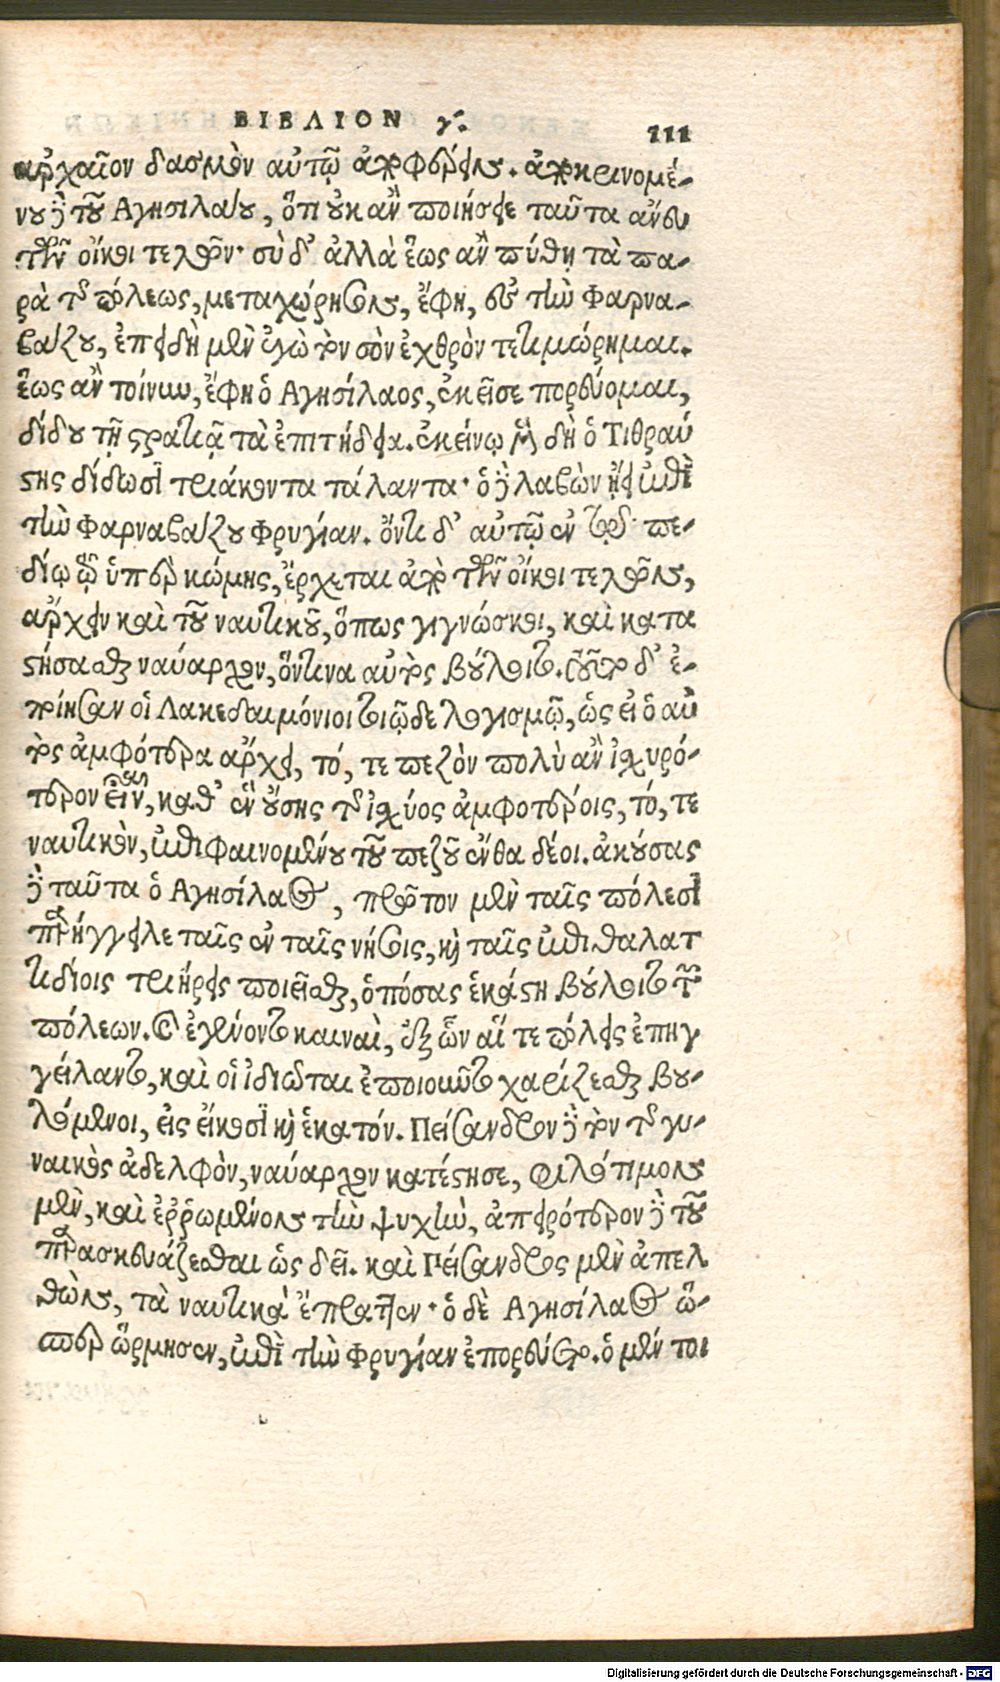 ΒΙΒΛΙΟΝ γ΄. 111
ἀρχαῖον δασμὸν αὐτῷ ἀποφέρειν. ἀποκρινομέ-
νου δὲ τοῦ Αγησιλάου, ὅτι οὐκ ἂν ποιήσειε ταῦτα ἄνευ
τῶν οἴκοι τελῶν· σὺ δ' ἀλλὰ ἕως ἂν πύθῃ τὰ πα-
ρὰ τῆς πόλεως, μεταχώρησον, ἔφη, εἰς τὴν Φαρνα-
βάζου, ἐπειδὴ μὲν ἐγὼ τὸν σὸν ἐχθρὸν τετιμώρημαι.
ἕως ἂν τοίνυν, ἔφη ὁ Αγησίλαος, ἐκεῖσε πορεύομαι,
δίδου τῇ στρατιᾷ τὰ ἐπιτήδεια. ἐκείνῳ μὲν δὴ ὁ Τιθραύ
στης δίδωσι τριάκοντα τάλαντα· ὁ δὲ λαβὼν ᾔει ἐπὶ
τὴν Φαρναβάζου Φρυγίαν. ὄντι δ' αὐτῷ ἐν τῷ πε-
δίῳ τῷ ὑπὲρ κώμης, ἔρχεται ἀπὸ τῶν οἴκοι τελῶν,
ἄρχειν καὶ τοῦ ναυτικοῦ, ὅπως γιγνώσκοι, καὶ κατα
στήσασθαι ναύαρχον, ὅντινα αὐτὸς βούλοιτο. τοῦτο δ' ἐ-
ποίησαν οἱ Λακεδαιμόνιοι τοιῷδε λογισμῷ, ὡς εἰ ὁ αὐ
τὸς ἀμφότερα ἄρχει, τό, τε πεζὸν πολὺ ἂν ἰσχυρό-
τερον εἶναι, καθ' ἓν οὔσης τῆς ἰσχύος ἀμφοτέροις, τό, τε
ναυτικὸν, ἐπιφαινομένου τοῦ πεζοῦ ἔνθα δέοι. ἀκούσας
δὲ ταῦτα ὁ Αγησίλαος, πρῶτον μὲν ταῖς πόλεσι
παρήγγειλε ταῖς ἐν ταῖς νήσοις, καὶ ταῖς ἐπιθαλατ
τιδίοις τριήρεις ποιεῖσθαι, ὁπόσας ἑκάστη βούλοιτο τῶν
πόλεων. καὶ ἐγένοντο καιναὶ, ἐξ ὧν αἵ τε πόλεις ἐπηγ
γείλαντο, καὶ οἱ ἰδιῶται ἐποιοῦντο χαρίζεσθαι βου-
λόμενοι, εἰς εἴκοσι καὶ ἑκατόν. Πείσανδρον δὲ τὸν τῆς γυ-
ναικὸς ἀδελφὸν, ναύαρχον κατέστησε, φιλότιμον
μὲν, καὶ ἐῤῥωμένον τὴν ψυχὴν, ἀπειρότερον δὲ τοῦ
παρασκευάζεσθαι ὡς δεῖ. καὶ Πείσανδρος μὲν ἀπελ
θὼν, τὰ ναυτικὰ ἔπραττεν· ὁ δὲ Αγησίλαος ὥ-
σπερ ὥρμησεν, ἐπὶ τὴν Φρυγίαν ἐπορεύετο. ὁ μέν τοι
Digitalisierung gefördert durch die Deutsche Forschungsgemeinschaft - DFG